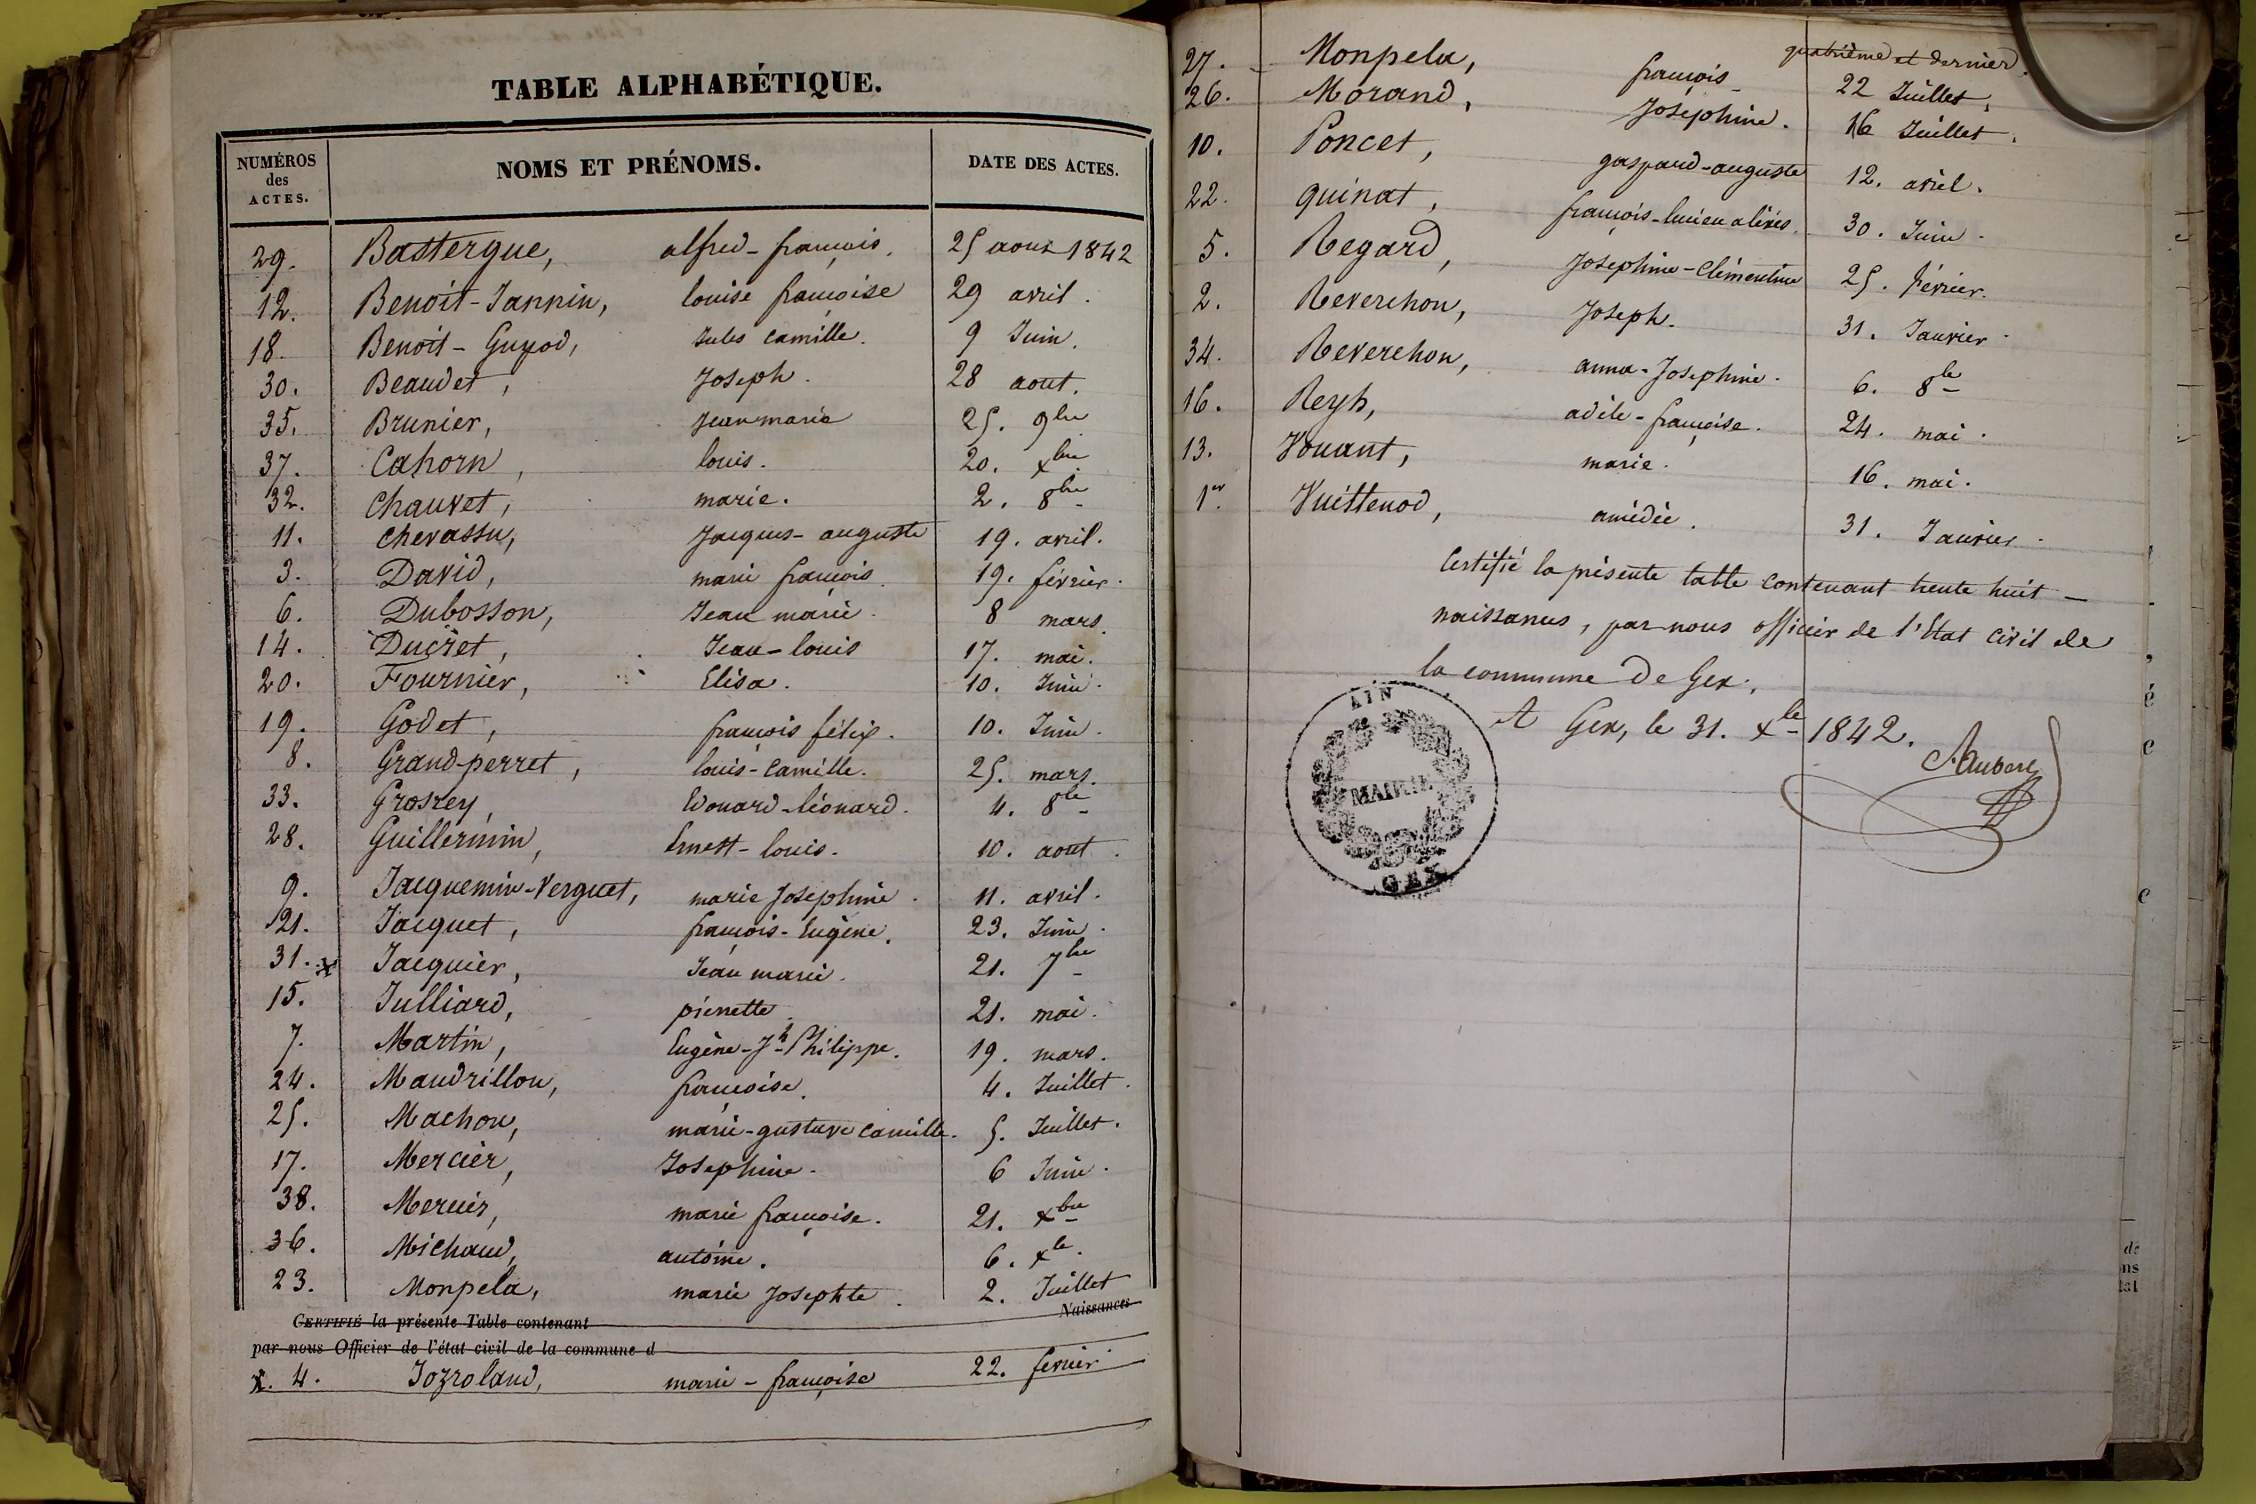 TABLE ALPHABÉTIQUE.
NUMÉROS des ACTES. NOMS ET PRÉNOMS. DATE DES ACTES.
29. Bastergue, alfred-françois. 25 aout 1842
12. Benoit-Jannin, louise françoise 29 avril.
18. Benoit-Guyod, Jules camille. 9 Juin.
30. Beaudet, Joseph. 28 aout.
35. Brunier, Jean marie 25. 9bre
37. Cahorn, louis. 20. xbre
32. Chauvet, marie. 2. 8bre
11. Chevassu, Jacques-auguste 19. avril.
3. David, marie françois 19. février.
6. Dubosson, Jean marie. 8 mars.
14. Ducret, Jean-louis 17. mai.
20. Fournier, Elisa. 10. Juin.
19. Godet, françois félix. 10. Juin.
8. Grand-perret, louis-camille. 25. mars.
33. Grosrey, Edouard-léonard. 4. 8bre
28. Guillermin, Ernest-louis. 10. aout.
9. Jacquemin-Verguet, marie Josephine. 11. avril.
21. Jacquet, françois-Eugène. 23. Juin.
31. x Jacquier, Jean marie. 21. 7bre
15. Julliard, pierrette. 21. mai.
7. Martin, Eugène-Jh-Philippe. 19. mars.
24. Maudrillon, françoise. 4. Juillet.
25. Machon, marie-gustave camille. 5. Juillet.
17. Mercier, Josephine. 6 Juin.
38. Mercier, marie françoise. 21. xbre
36. Michaud, antoine. 6. xbre.
23. Monpela, marie Josephte. 2. Juillet
CERTIFIÉ la présente Table contenant Naissances
par nous Officier de l'état civil de la commune d
x. 4. Jozroland, marie-françoise 22. fevrier
quatrième et dernier.
27. Monpela, françois 22 Juillet.
26. Morand, Joséphine. 16 Juillet.
10. Poncet, gaspard-auguste 12. avril.
22. quinat, françois-lucien alixis. 30. Juin.
5. Regard, Josephine-Clémentine 25. février.
2. Reverchon, Joseph. 31. Janvier.
34. Reverchon, anna-Josephine. 6. 8bre
16. Reyh, adèle-françoise. 24. mai.
13. Vouant, marie. 16. mai.
1er. Vuittenod, amédée. 31. Janvier.
Certifié la présente table contenant trente huit —
naissances, par nous officier de l'Etat civil de
la commune de Gex.
A Gex, le 31. xbre 1842.
AIN
MAIRIE
GEX